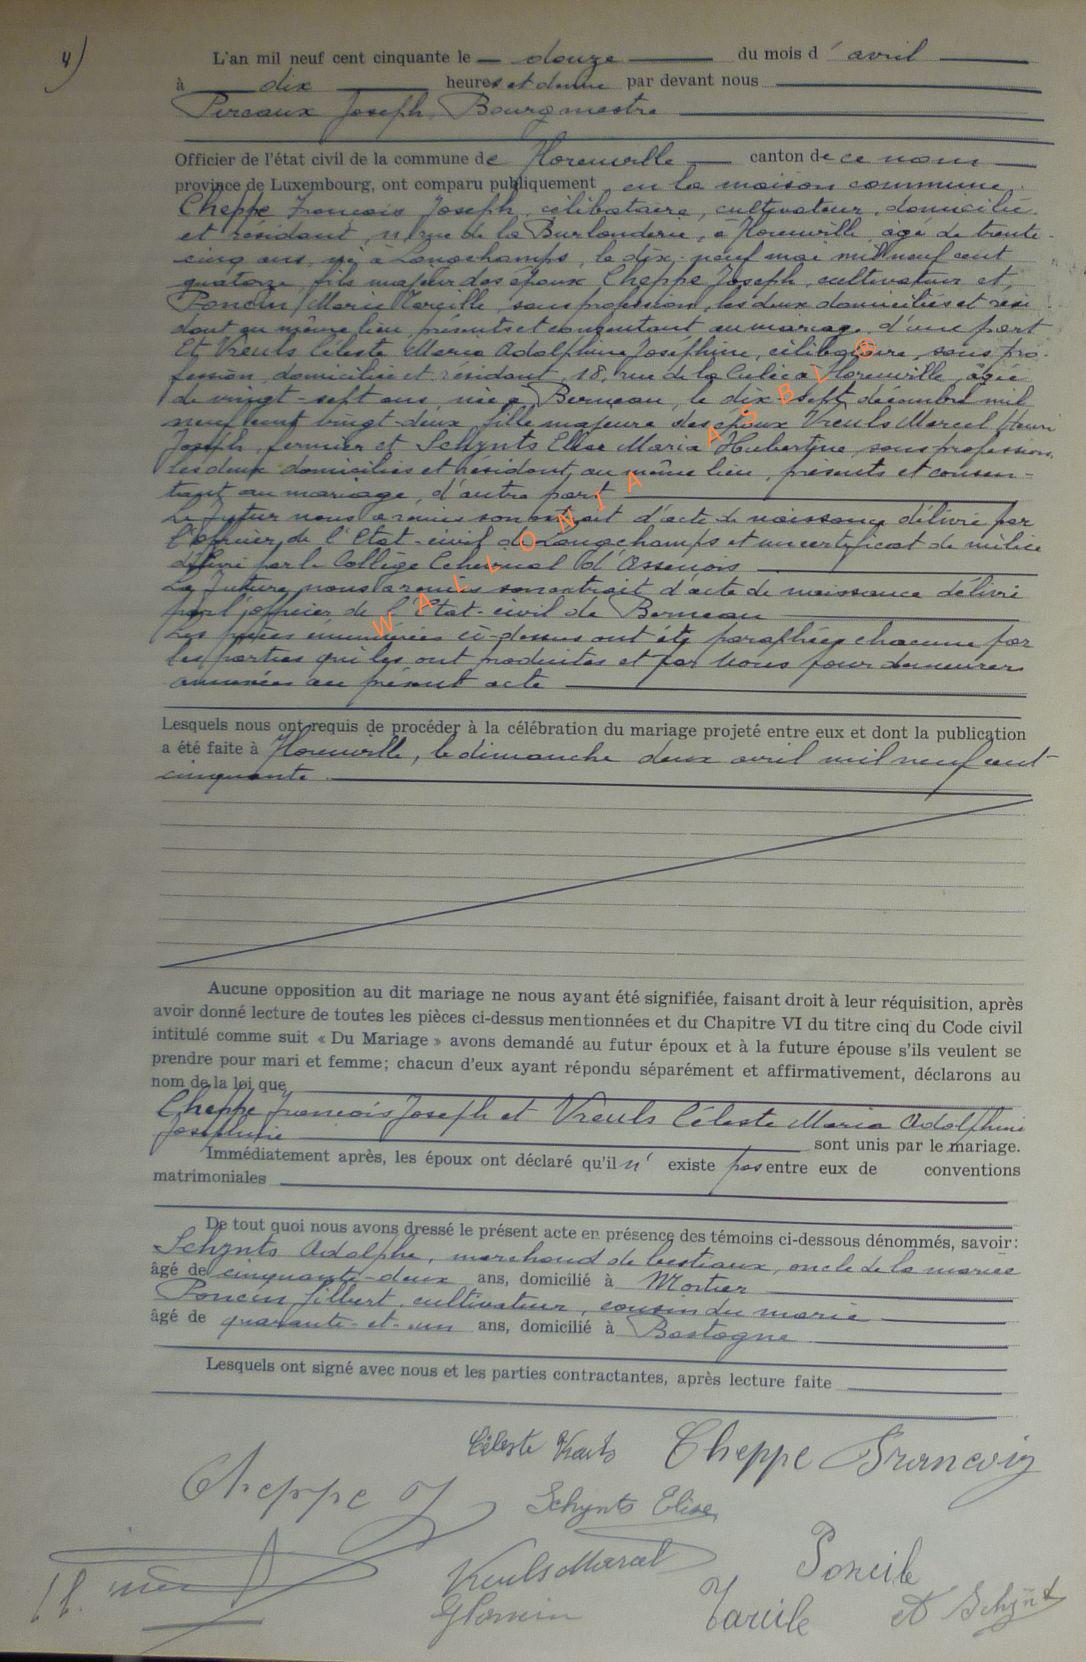 4)
L'an mil neuf cent cinquante le douze du mois d'avril
à dix heures et demie par devant nous
Pireaux Joseph, Bourgmestre
Officier de l'état civil de la commune de Florenville canton de ce nom
province de Luxembourg, ont comparu publiquement en la maison commune,
Cheppe François Joseph, célibataire, cultivateur, domicilié
et résidant, rue de la Burlanderie, à Florenville, âgé de trente-
cinq ans, né à Longchamps, le dix-neuf mai mil neuf cent
quatorze, fils majeur des époux Cheppe Joseph, cultivateur et
Poncin Marie Tarcille, sans profession, les deux domiciliés et rési
dant au même lieu, présents et consentant au mariage, d'une part
Et Vreuls Céleste Maria Adolphine Joséphine, célibataire, sans pro-
fession, domiciliée et résidant, 18, rue de la Culée à Florenville, âgée
de vingt-sept ans, née à Berneau, le dix-sept décembre mil
neuf cent vingt-deux, fille majeure des époux Vreuls Marcel Henri
Joseph, fermier et Schynts Elise Maria Hubertine, sans profession,
les deux domiciliés et résidant au même lieu, présents et consen-
tant au mariage, d'autre part
Le futur nous a remis son extrait d'acte de naissance délivré par
l'officier de l'Etat-civil de Longchamps et un certificat de milice
délivré par le Collège Echevinal d'Assenois
La future nous a remis son extrait d'acte de naissance délivré
par l'officier de l'Etat-civil de Berneau
Les pièces énumérées ci-dessus ont été paraphées chacune par
les parties qui les ont produites et par Nous pour demeurer
annexées au présent acte
WALLONIA ASBL ®
Lesquels nous ont requis de procéder à la célébration du mariage projeté entre eux et dont la publication
a été faite à Florenville, le dimanche deux avril mil neuf cent
cinquante.
Aucune opposition au dit mariage ne nous ayant été signifiée, faisant droit à leur réquisition, après
avoir donné lecture de toutes les pièces ci-dessus mentionnées et du Chapitre VI du titre cinq du Code civil
intitulé comme suit « Du Mariage » avons demandé au futur époux et à la future épouse s'ils veulent se
prendre pour mari et femme; chacun d'eux ayant répondu séparément et affirmativement, déclarons au
nom de la loi que
Cheppe François Joseph et Vreuls Céleste Maria Adolphine
Joséphine sont unis par le mariage.
Immédiatement après, les époux ont déclaré qu'il n' existe pas entre eux de conventions
matrimoniales
De tout quoi nous avons dressé le présent acte en présence des témoins ci-dessous dénommés, savoir:
Schynts Adolphe, marchand de bestiaux, oncle de la mariée
âgé de cinquante-deux ans, domicilié à Mortier
Poncin Gilbert, cultivateur, cousin du marié
âgé de quarante-et-un ans, domicilié à Bastogne
Lesquels ont signé avec nous et les parties contractantes, après lecture faite
Céleste Vreuls Cheppe François
Cheppe J Schynts Elise
Vreuls Marcel Poncin
G Poncin Tarcile A Schynts